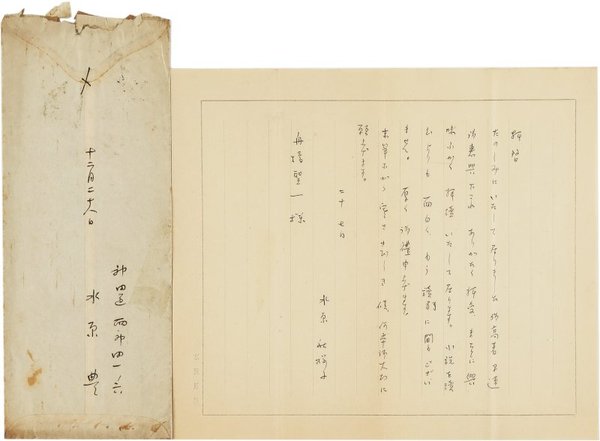 拝啓
たのしみにいたして居りました御高著早速
御恵与下され ありがたく拝受 まことに興
味ふかく拝読いたして居ります。小説を読
むよりも面白く、もう読了に間もござい
ません。厚く御禮申上げます。
末筆ながら寒さきびしき候、何卒御大切に
願上げます。
二十七日
水原秋桜子
舟橋聖一様
神田区西神田一ノ六
水原豊
十二月二十八日
〆